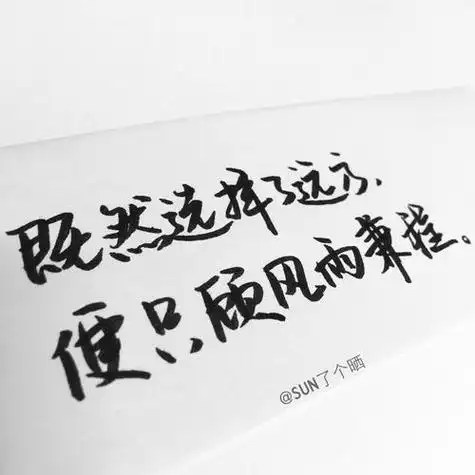 既然选择了远方、
便只顾风雨兼程。
@SUN了个晒